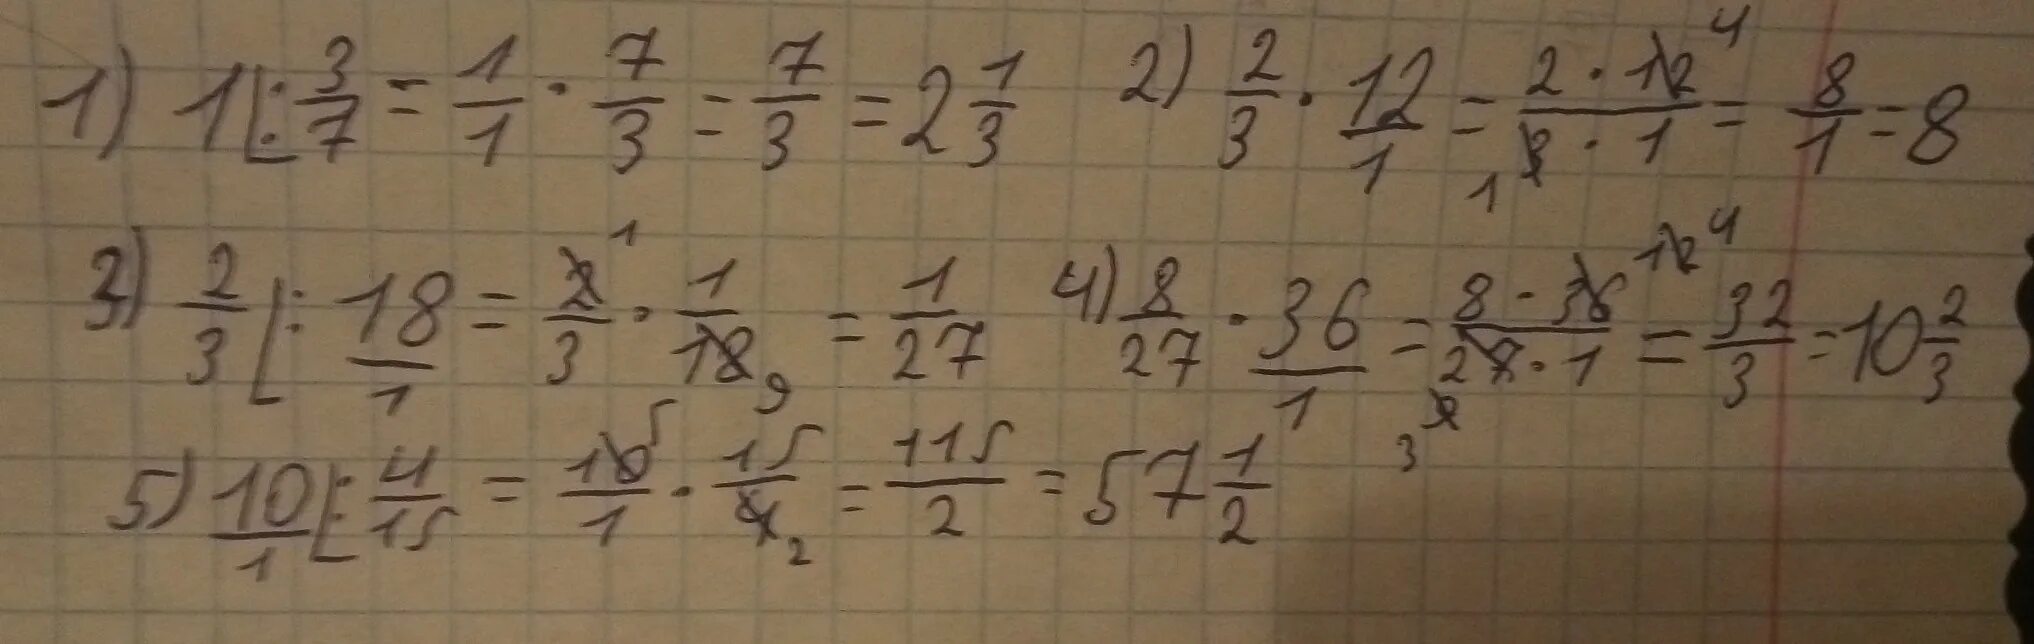 1) 1 : 3/7 = 1/1 · 7/3 = 7/3 = 2 1/3  2) 2/3 · 12/1 = 2 · 12 4 / 1 3 · 1 = 8/1 = 8
3) 2/3 : 18/1 = 2 1 /3 · 1/18 9 = 1/27  4) 8/27 · 36/1 = 8 · 36 12 4 / 27 9 3 · 1 = 32/3 = 10 2/3
5) 10/1 : 4/15 = 10 5 /1 · 15/4 2 = 115/2 = 57 1/2